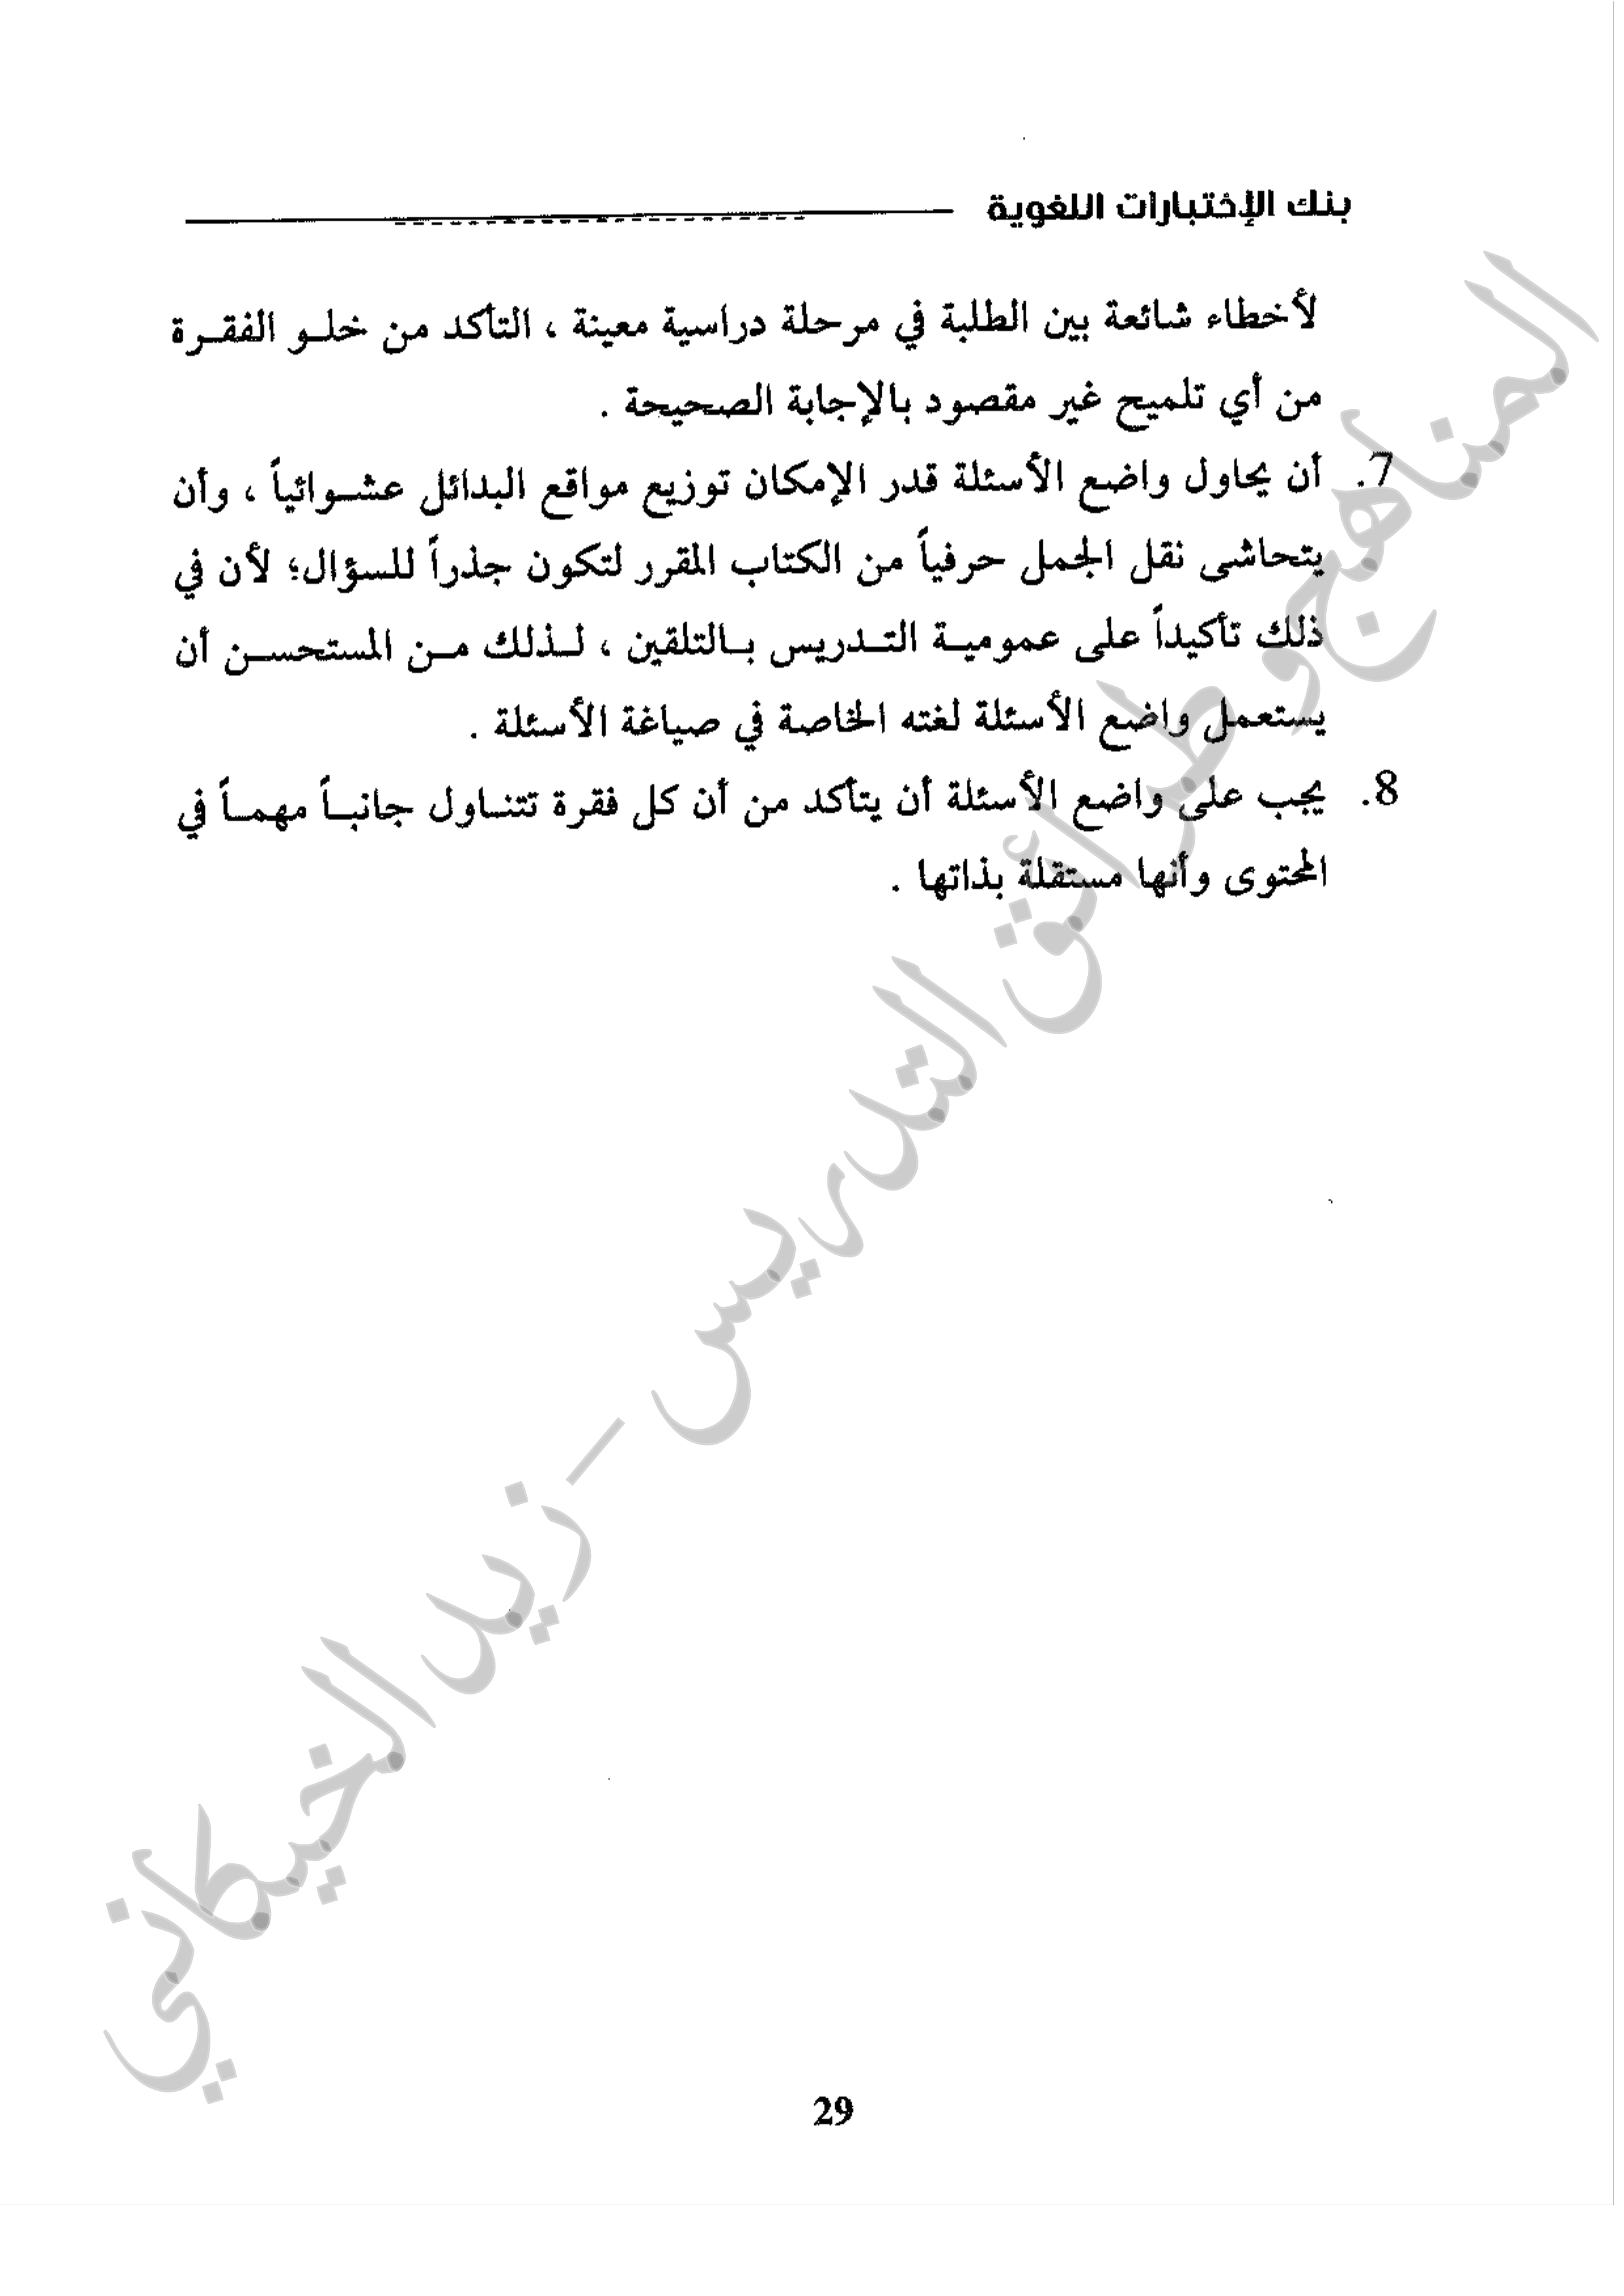 بنك الإختبارات اللغوية
لأخطاء شائعة بين الطلبة في مرحلة دراسية معينة ، التأكد من خلو الفقرة
من أي تلميح غير مقصود بالإجابة الصحيحة .
7. أن يحاول واضع الأسئلة قدر الإمكان توزيع مواقع البدائل عشوائياً ، وأن
يتحاشى نقل الجمل حرفياً من الكتاب المقرر لتكون جذراً للسؤال؛ لأن في
ذلك تأكيداً على عمومية التدريس بالتلقين ، لذلك من المستحسن أن
يستعمل واضع الأسئلة لغته الخاصة في صياغة الأسئلة .
8. يجب على واضع الأسئلة أن يتأكد من أن كل فقرة تتناول جانباً مهماً في
المحتوى وأنها مستقلة بذاتها .
المناهج وطرائق التدريس - زيد الخيكاني
29